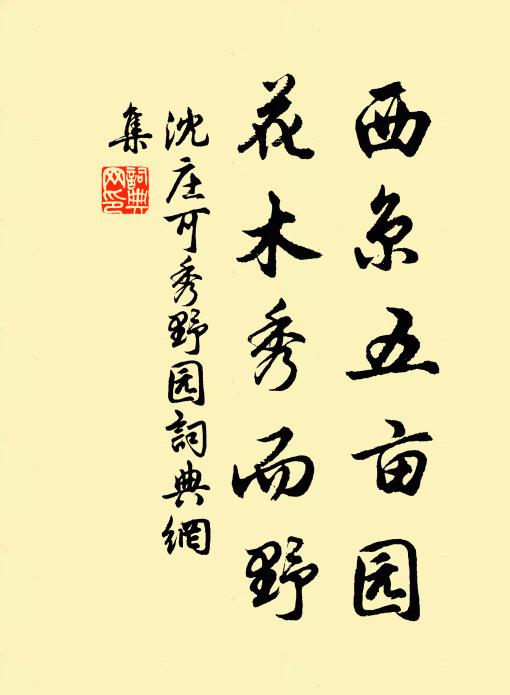 西京五亩园
花木秀而野
沈庄可秀野园词典網
集
詞典
网印